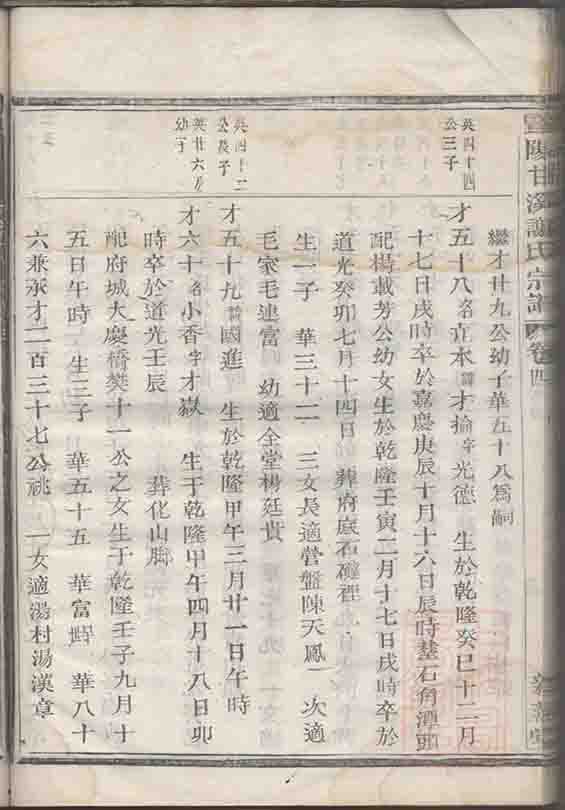 暨陽甘溪譜氏宗譜 卷四
繼才廿九公幼子華五十八爲嗣
英四十四
公三子
才五十八 名克承 諱才掄 字光德 生於乾隆癸巳十二月
十七日戌時卒於嘉慶庚辰十月十六日辰時塟石角潭頭
配楊載芳公幼女生於乾隆壬寅二月十七日戌時卒於
道光癸卯七月十四日 葬府底石硾裡
生一子 華三十二 三女長適營盤陳天鳳 次適
毛家毛連富 幼適全堂楊廷貴
英四十二
公長子
才五十九 諱國進 生於乾隆甲午三月廿一日午時
英廿六公
幼子
才六十 名小香 字才嶽 生于乾隆甲午四月十八日卯
時卒於道光壬辰 葬化山脚
配府城大慶橋樊十一公之女生于乾隆壬子九月十
五日午時 生三子 華五十五 華富 殤 華八十
六兼承才二百三十七公祧 一女適湯村湯漢章